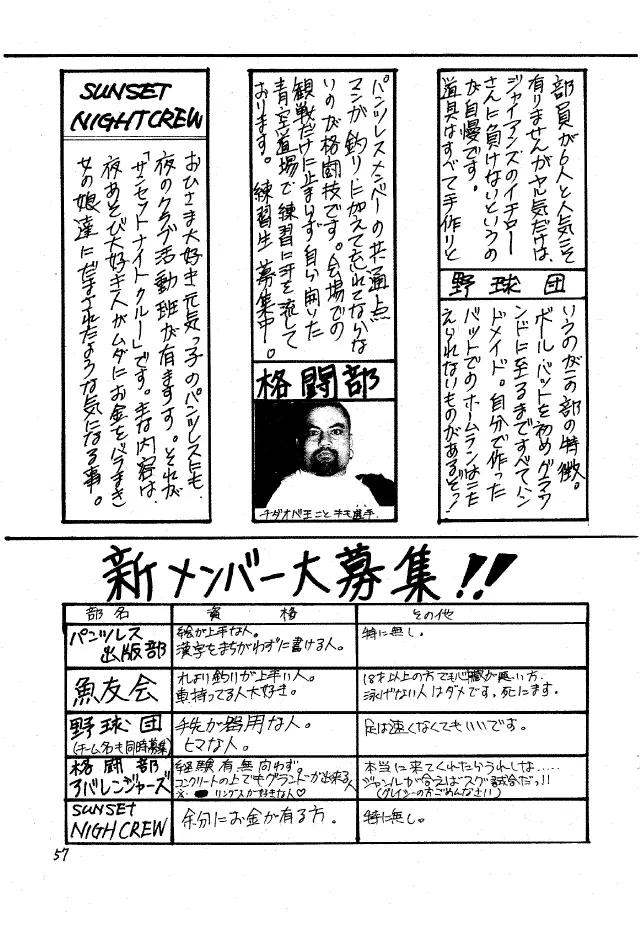 部員が6人と人気こそ
有りませんがヤル気だけは、
ジャイアンズのイチロー
さんに負けないというの
が自慢です。
道具はすべて手作りと
野球団
いうのがこの部の特徴。
ボール、バットを初めグラウ
ンドに至るまですべてハン
ドメイド。自分で作った
バットでのホームランはこた
えられないものがあるぞっ!
パンツレスメンバーの共通点
マンが、釣りに加えて忘れてならな
いのが格闘技です。会場での
観戦だけに止まらず自ら開いた
青空道場で練習に汗を流して
おります。練習生募集中。
格闘部
チダオベ王こと チモ選手
SUNSET
NIGHTCREW
おひさま大好き元気っ子のパンツレスにも
夜のクラブ活動班が有ります。それが
「サンセットナイトクルー」です。主な内容は、
夜あそび大好き人がムダにお金をバラまき
女の娘達にだまされたような気になる事。
新メンバー大募集!!
部名 資格 その他
パンツレス
出版部
絵が上手な人。
漢字をまちがわずに書ける人。
特に無し。
魚友会
れより釣りが上手い人。
車持ってる人大好き。
18才以上の方でも心臓が悪い方、
泳げない人はダメです。死にます。
野球団
(チーム名も同時募集)
手先が器用な人。
ヒマな人。
足は速くなくてもいいです。
格闘部
アバレンジャーズ
経験有無問わず。
コンクリートの上でもグランドーが出来る人
※ リングスが好きな人♡
本当に来てくれたらうれしな.....
ジャンルが合えばスグ試合だっ!!
(グレイシーの方ごめんなさい)
SUNSET
NIGHCREW
余分にお金が有る方。
特に無し。
57